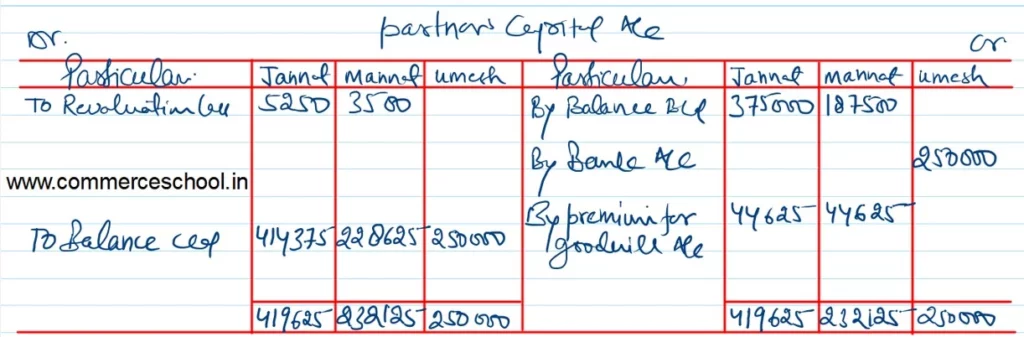 partners Capital A/c
Dr. Cr
Particular. Jannat Mannat Umesh Particular. Jannat Mannat Umesh
To Revaluation Loss 5250 3500 By Balance B/d 375000 187500
By Bank A/c 250000
www.commerceschool.in
To Balance c/d 414375 228625 250000 By premium for goodwill A/c 44625 44625
419625 232125 250000 419625 232125 250000